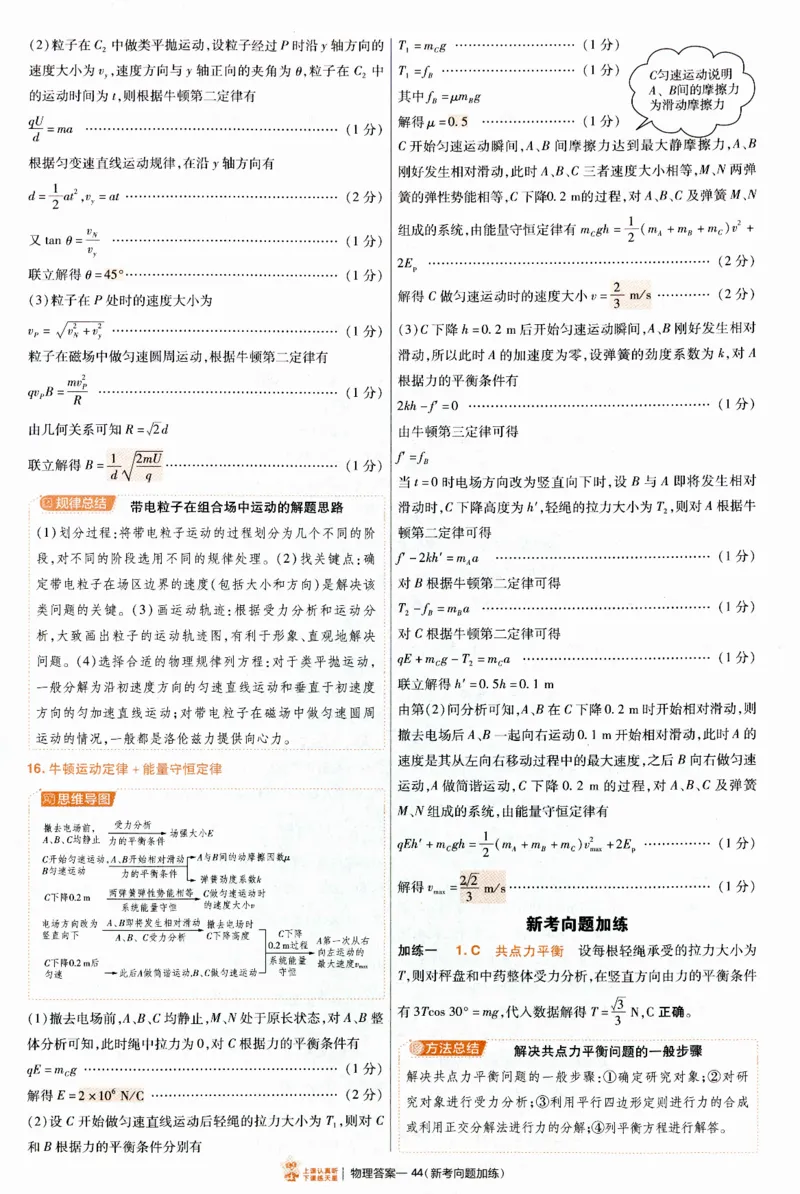 (2)粒子在C₂中做类平抛运动,设粒子经过P时沿y轴方向的
速度大小为v_y,速度方向与y轴正向的夹角为θ,粒子在C₂中
的运动时间为t,则根据牛顿第二定律有
qU/d=ma ……………………………… (1分)
根据匀变速直线运动规律,在沿y轴方向有
d=1/2at²,v_y=at ……………………………… (2分)
又tan θ=v_N/v_y ……………………………… (1分)
联立解得θ=45°……………………………… (1分)
(3)粒子在P处时的速度大小为
v_P=√(v_N²+v_y²) ……………………………… (1分)
粒子在磁场中做匀速圆周运动,根据牛顿第二定律有
qv_PB=mv_P²/R ……………………………… (1分)
由几何关系可知R=√2d
联立解得B=1/d√(2mU/q) ……………………………… (1分)
规律总结 带电粒子在组合场中运动的解题思路
(1)划分过程:将带电粒子运动的过程划分为几个不同的阶
段,对不同的阶段选用不同的规律处理。(2)找关键点:确
定带电粒子在场区边界的速度(包括大小和方向)是解决该
类问题的关键。(3)画运动轨迹:根据受力分析和运动分
析,大致画出粒子的运动轨迹图,有利于形象、直观地解决
问题。(4)选择合适的物理规律列方程:对于类平抛运动,
一般分解为沿初速度方向的匀速直线运动和垂直于初速度
方向的匀加速直线运动;对带电粒子在磁场中做匀速圆周
运动的情况,一般都是洛伦兹力提供向心力。
16.牛顿运动定律+能量守恒定律
思维导图
撤去电场前,
A、B、C均静止
受力分析
力的平衡条件
场强大小E
C开始匀速运动,A、B开始相对滑动
B匀速运动
力的平衡条件
A与B间的动摩擦因数μ
弹簧劲度系数k
C下降0.2 m
两弹簧弹性势能相等
系统能量守恒
C做匀速运动时
的速度大小v
电场方向改为
竖直向下
A、B即将发生相对滑动
A、B、C受力分析
撤去电场时
C下降高度
C下降0.2 m后
匀速
此后A做简谐运动,B、C做匀速运动
C下降
0.2 m过程
系统能量
守恒
A第一次从右
向左运动的
最大速度v_max
(1)撤去电场前,A、B、C均静止,M、N处于原长状态,对A、B整
体分析可知,此时绳中拉力为0,对C根据力的平衡条件有
qE=m_Cg ……………………………… (1分)
解得E=2×10⁶ N/C ……………………………… (2分)
(2)设C开始做匀速直线运动后轻绳的拉力大小为T₁,则对C
和B根据力的平衡条件分别有
T₁=m_Cg ……………………… (1分)
T₁=f_B ……………………… (1分)
其中f_B=μm_Bg
解得μ=0.5 ……………………… (1分)
C匀速运动说明
A、B间的摩擦力
为滑动摩擦力
C开始匀速运动瞬间,A、B间摩擦力达到最大静摩擦力,A、B
刚好发生相对滑动,此时A、B、C三者速度大小相等,M、N两弹
簧的弹性势能相等,C下降0.2 m的过程,对A、B、C及弹簧M、N
组成的系统,由能量守恒定律有m_Cgh=1/2(m_A+m_B+m_C)v²+
2E_p ……………………………… (2分)
解得C做匀速运动时的速度大小v=2/3 m/s ………… (2分)
(3)C下降h=0.2 m后开始匀速运动瞬间,A、B刚好发生相对
滑动,所以此时A的加速度为零,设弹簧的劲度系数为k,对A
根据力的平衡条件有
2kh-f′=0 ……………………………… (1分)
由牛顿第三定律可得
f′=f_B
当t=0时电场方向改为竖直向下时,设B与A即将发生相对
滑动时,C下降高度为h′,轻绳的拉力大小为T₂,则对A根据牛
顿第二定律可得
f′-2kh′=m_Aa ……………………………… (1分)
对B根据牛顿第二定律可得
T₂-f_B=m_Ba ……………………………… (1分)
对C根据牛顿第二定律可得
qE+m_Cg-T₂=m_Ca ……………………………… (1分)
联立解得h′=0.5h=0.1 m
由第(2)问分析可知,A、B在C下降0.2 m时开始相对滑动,则
撤去电场后A、B一起向右运动0.1 m开始相对滑动,此时A的
速度是其从左向右移动过程中的最大速度,之后B向右做匀速
运动,A做简谐运动,C下降0.2 m的过程,对A、B、C及弹簧
M、N组成的系统,由能量守恒定律有
qEh′+m_Cgh=1/2(m_A+m_B+m_C)v_max²+2E_p ………… (1分)
解得v_max=2√2/3 m/s……………………………… (1分)
新考向问题加练
加练一 1.C 共点力平衡 设每根轻绳承受的拉力大小为
T,则对秤盘和中药整体受力分析,在竖直方向由力的平衡条件
有3Tcos 30°=mg,代入数据解得T=√3/3 N,C正确。
方法总结 解决共点力平衡问题的一般步骤
解决共点力平衡问题的一般步骤:①确定研究对象;②对研
究对象进行受力分析;③利用平行四边形定则进行力的合成
或利用正交分解法进行力的分解;④列平衡方程进行解答。
上课认真听
下课练天星
物理答案—44(新考向问题加练)